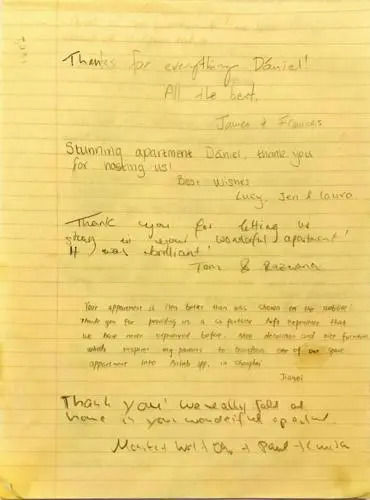 Thanks for everything Daniel!
All the best,
James & Frances
Stunning apartment Daniel, thank you
for hosting us!
Best Wishes
Lucy, Jen & Laura.
Thank you for letting us
stay in your wonderful apartment!
It was brilliant!
Tom &
Your apartment is even better than was shown on the website!
Thank you for providing us a loft experience that
we have never experienced before. Nice decoration and nice furniture
which inspire my parents to transform one of our spare
apartment into Airbnb app. in Shanghai
Thank you! We really felt at
home in your wonderful apartment
& Paul